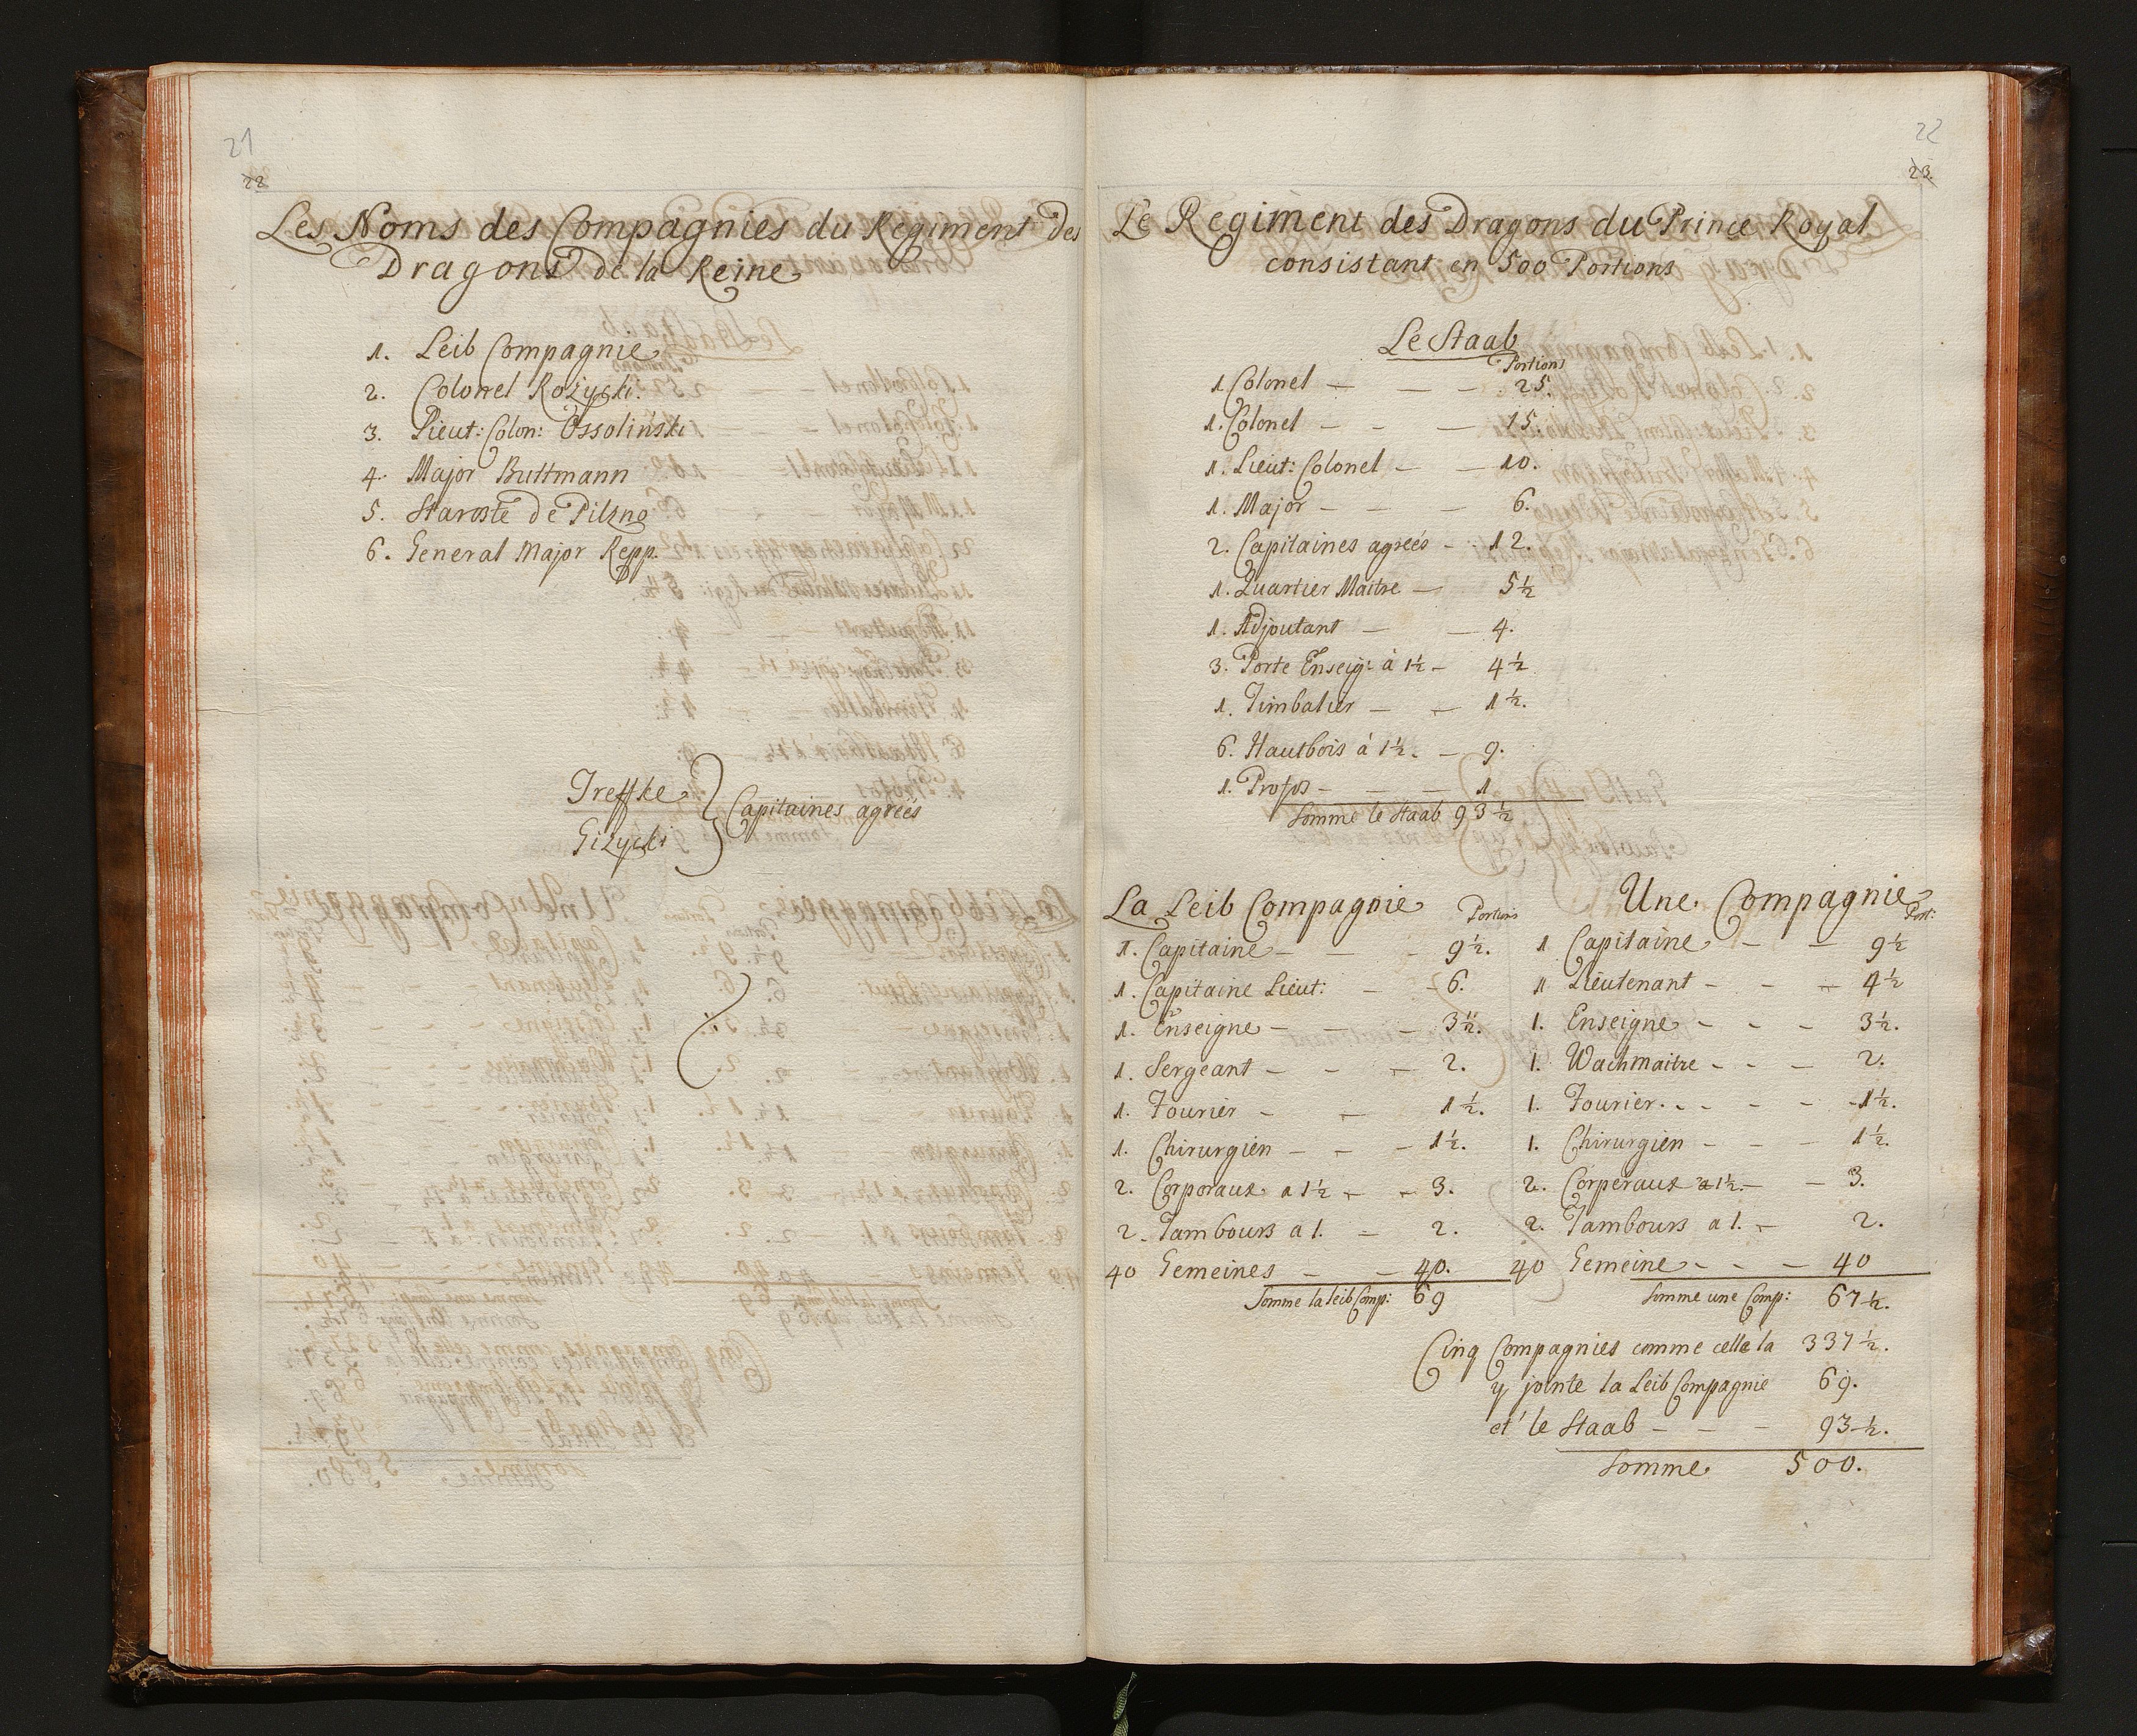 21
22
Les Noms des Compagnies du Regiment des
Dragons de la Reine
1. Leib Compagnie
2. Colonel Rożycki.
3. Lieut: Colon: Ossoliński
4. Major Buttmann
5. Staroste de Pilzno
6. General Major Repp.
Treffke
Giżycki
Capitaines agreés
22
23.
Le Regiment des Dragons du Prince Royal
consistant en 500 Portions
Le Staab
Portions
1 Colonel — — — 25.
1. Colonel — — — 15.
1. Lieut: Colonel — — 10.
1. Major — — — 6.
2. Capitaines agreés - 12.
1. Quartier Maitre — 5½
1. Adjoutant — — 4.
3. Porte Enseig: à 1½ - 4½
1. Timbalier — — 1½.
6. Hautbois à 1½. — 9.
1. Profos — — — 1
Somme le Staab 93½
La Leib Compagnie Portions
1. Capitaine — — - 9½.
1. Capitaine Lieut: — - 6.
1. Enseigne — — — 3½.
1. Sergeant — - — 2.
1. Fourier - — 1½.
1. Chirurgien — - - 1½.
2. Corporaux a 1½ - - 3.
2. Tambours a 1. — 2.
40 Gemeines — — 40.
Somme la Leib Comp: 69
Une Compagnie
Port:
1 Capitaine - — 9½
1 Lieutenant - - — 4½
1. Enseigne - - - 3½.
1. Wachmaitre - - — 2.
1. Fourier. - - - - 1½.
1. Chirurgien - - - 1½.
2. Corperaux a 1½. - — 3.
2. Tambours a 1. - 2.
40 Gemeine - - — 40
Somme une Comp: 67½.
Cinq Compagnies comme celle la 337½.
y jointe la Leib Compagnie 69.
et le Staab — - - 93½.
Somme 500.